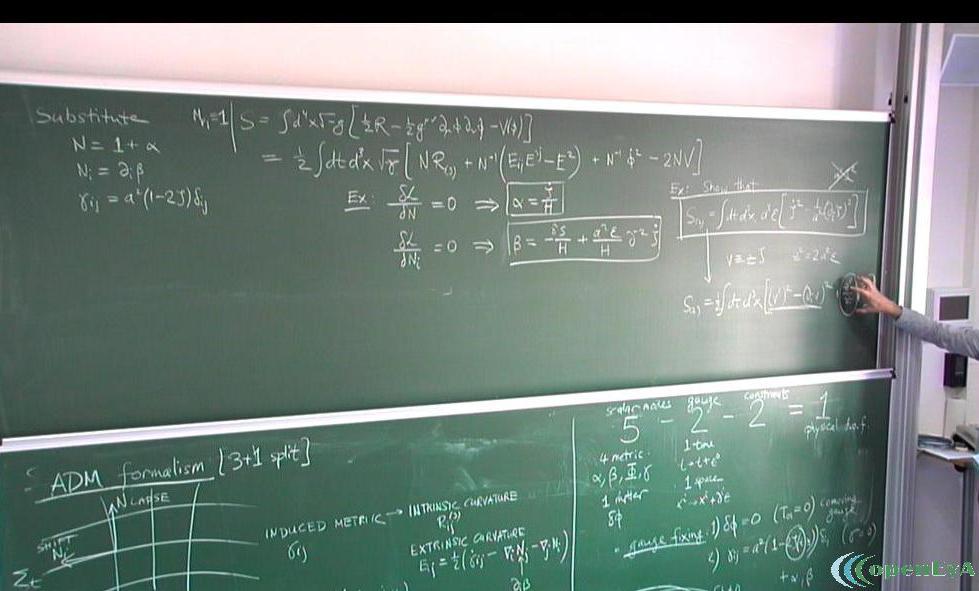 Substitute
N = 1 + α
N_i = ∂_i β
γ_ij = a²(1-2ζ)δ_ij
M_pl = 1 | S = ∫d⁴x √-g [½R - ½ g^μν ∂_μφ ∂_νφ - V(φ)]
= ½ ∫dt d³x √γ [N R_(3) + N⁻¹(E_ij E^ij - E²) + N⁻¹ φ̇² - 2NV]
Ex: δL/δN = 0 ⇒ α = ζ̇/H
δL/δN_i = 0 ⇒
Ex: Show that
S_(2) = ∫dt d³x a³ε [ζ̇² - 1/a² (∂_i ζ)²]
v ≡ z ζ z² = 2a²ε
S_(2) = ½∫dτ d³x [(v')² - (∂_i v)²
ADM formalism [3+1 split]
N LAPSE
SHIFT
N_i
Σ_t
INDUCED METRIC → INTRINSIC CURVATURE
γ_ij
R_(3)
EXTRINSIC CURVATURE
E_ij = ½(γ̇_ij - ∇_i N_j - ∇_j N_i)
∂_i β
scalar modes gauge constraints
5 - 2 - 2 = 1
physical d.o.f.
4 metric
α, β, Φ, γ
1 matter
δφ
1 time
1 space
gauge fixing: 1) δφ = 0
comoving gauge
+ α, β
openEyA